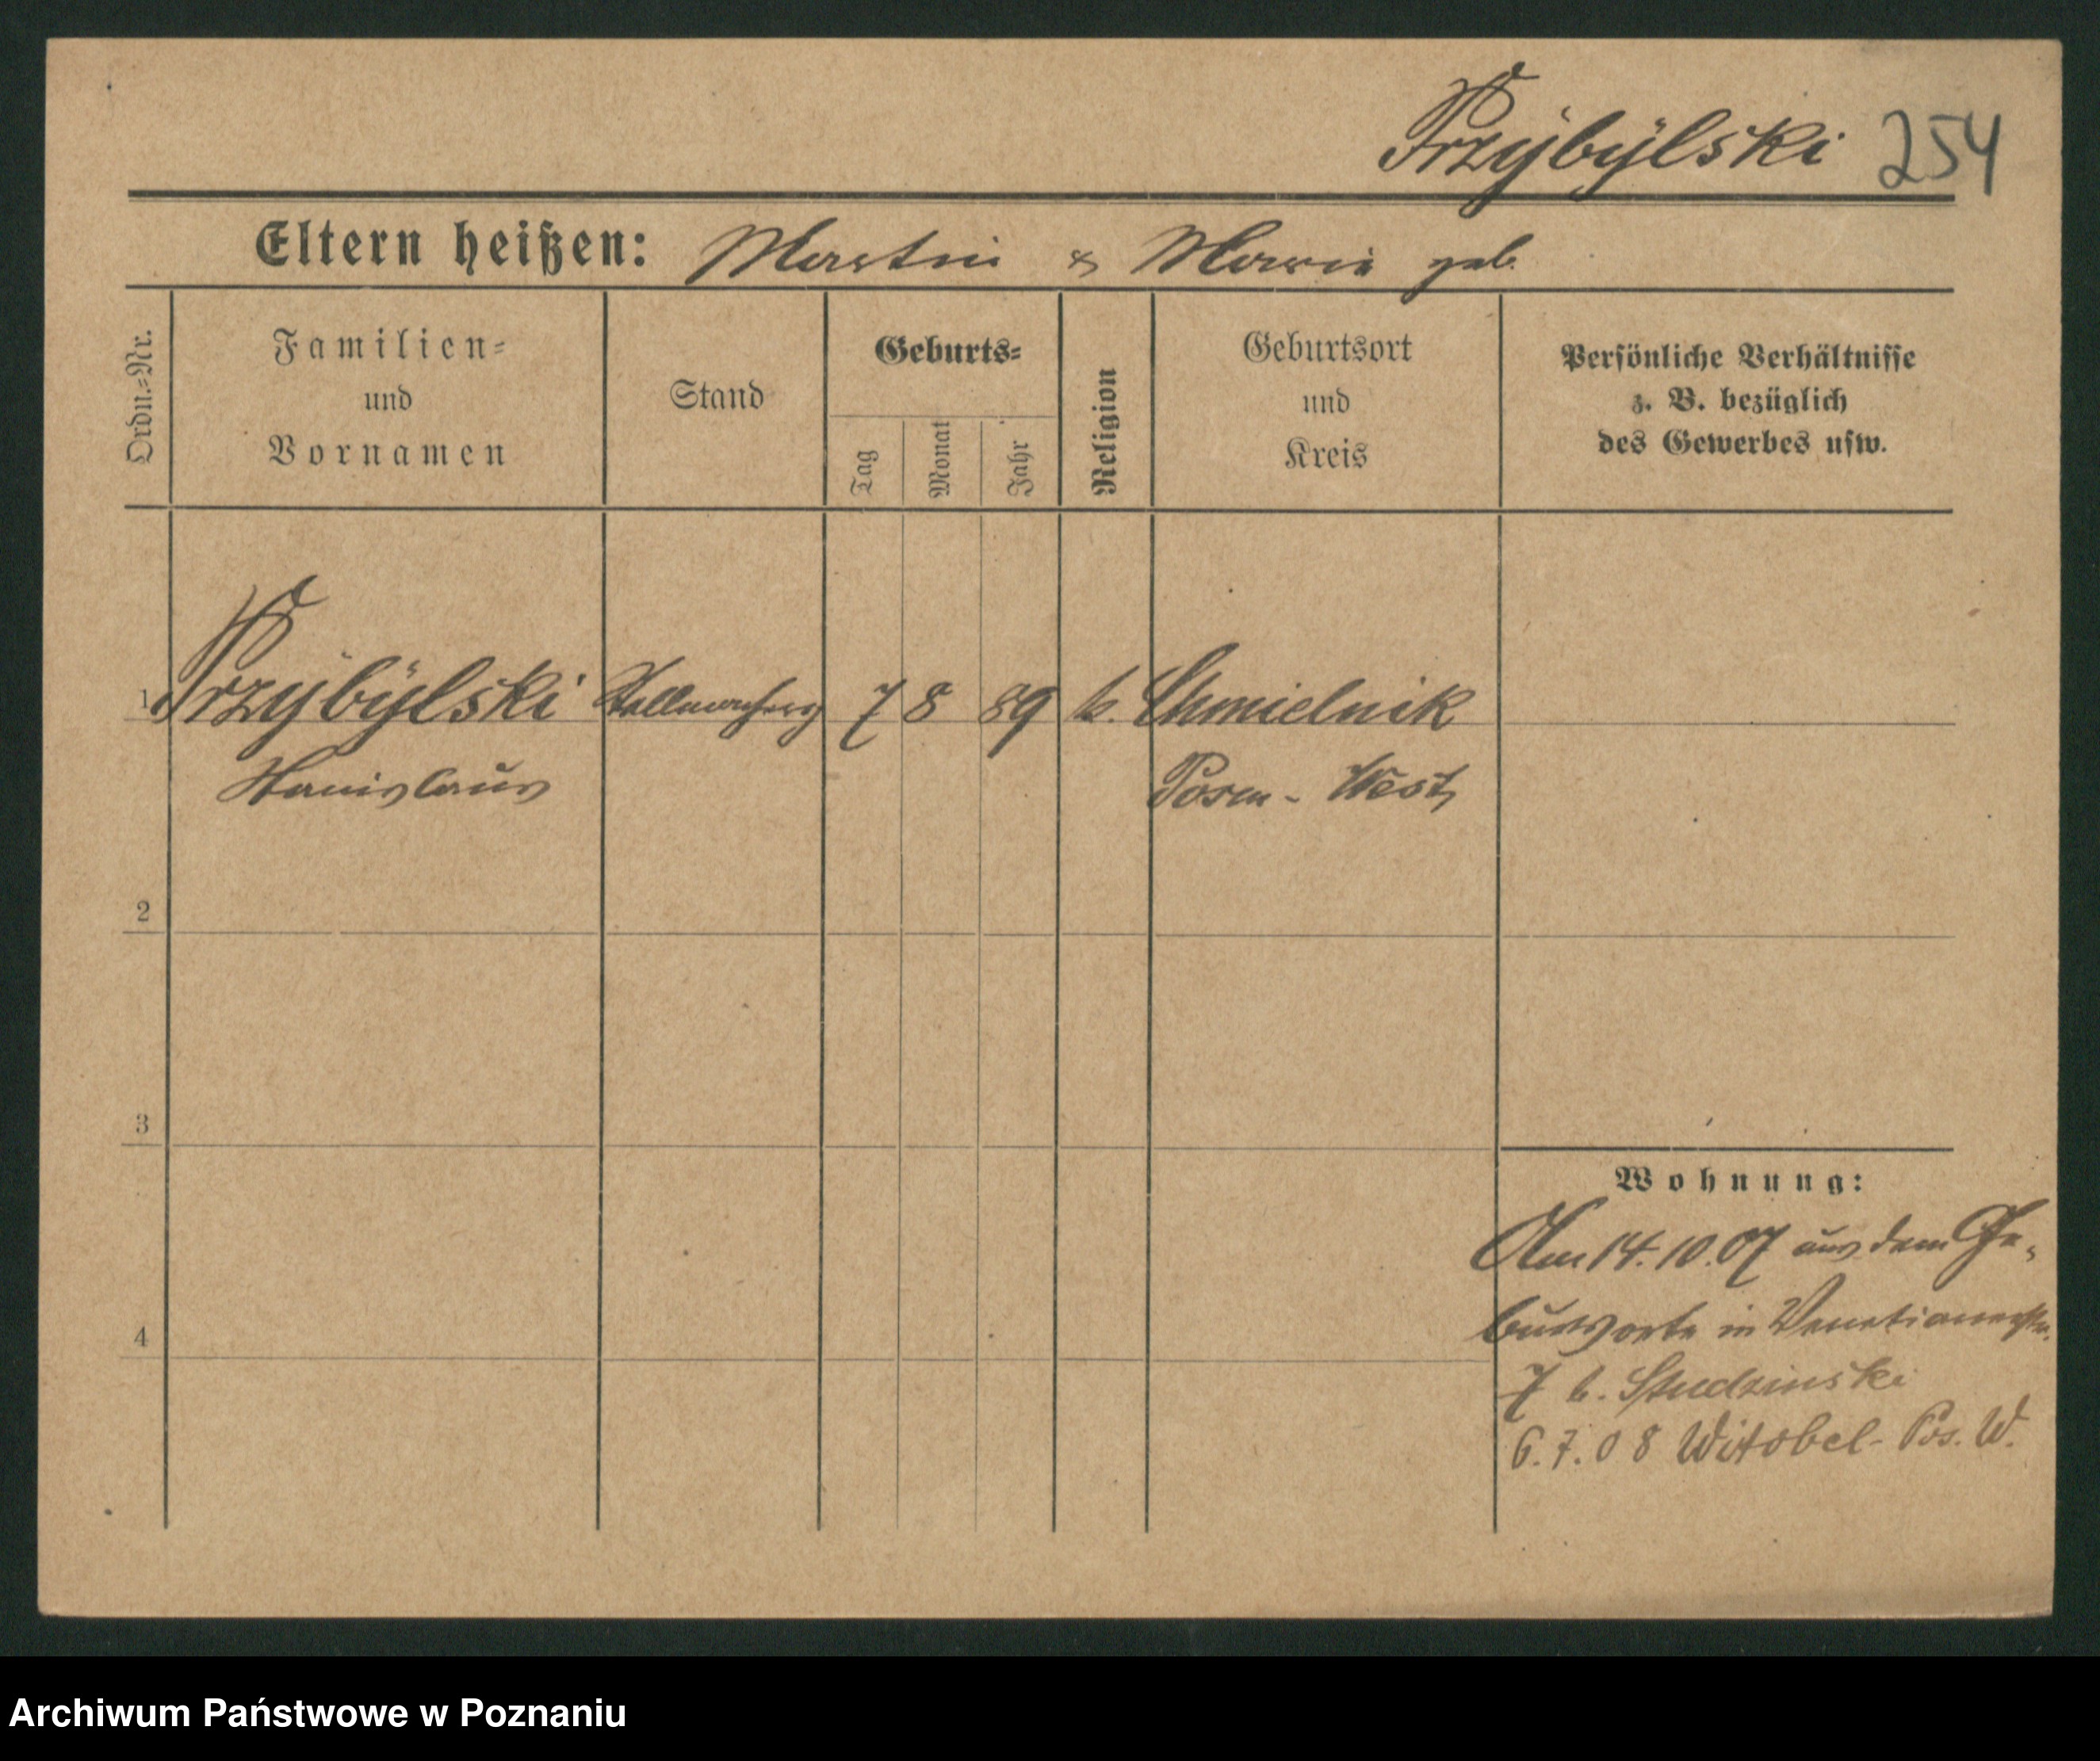 Przÿbÿlski 254
Eltern heißen: Martin & Marie geb.
Ordn.-Nr.
Familien-
und
Vornamen
Stand
Geburts-
Tag
Monat
Jahr
Religion
Geburtsort
und
Kreis
Persönliche Verhältnisse
z. B. bezüglich
des Gewerbes usw.
1 Przÿbÿlski 7 8 89 k. Chmielnik
Stanislaus Posen-West
2
3
4
Wohnung:
Am 14.10.07 aus dem Ge-
burtsorte in Venetianerstr.
7 b. Studzinski
6.7.08 Witobel-Pos. W.
Archiwum Państwowe w Poznaniu